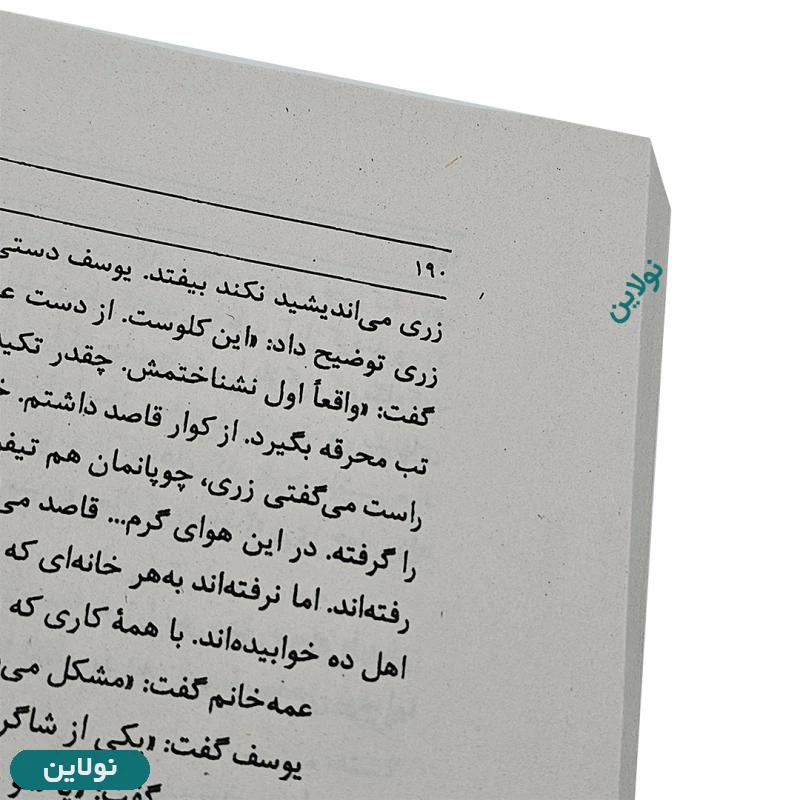 ۱۹۰
زری می‌اندیشید نکند بیفتد. یوسف دستی
زری توضیح داد: «این کلوست. از دست
گفت: «واقعاً اول نشناختمش. چقدر
تب محرقه بگیرد. از کوار قاصد داشتم.
راست می‌گفتی زری، چوپانمان هم
را گرفته. در این هوای گرم... قاصد
رفته‌اند. اما نرفته‌اند به‌هر خانه‌ای که
اهل ده خوابیده‌اند. با همهٔ کاری که
عمه‌خانم گفت: «مشکل
یوسف گفت: «یکی از
گفت:
نولاین
نولاین